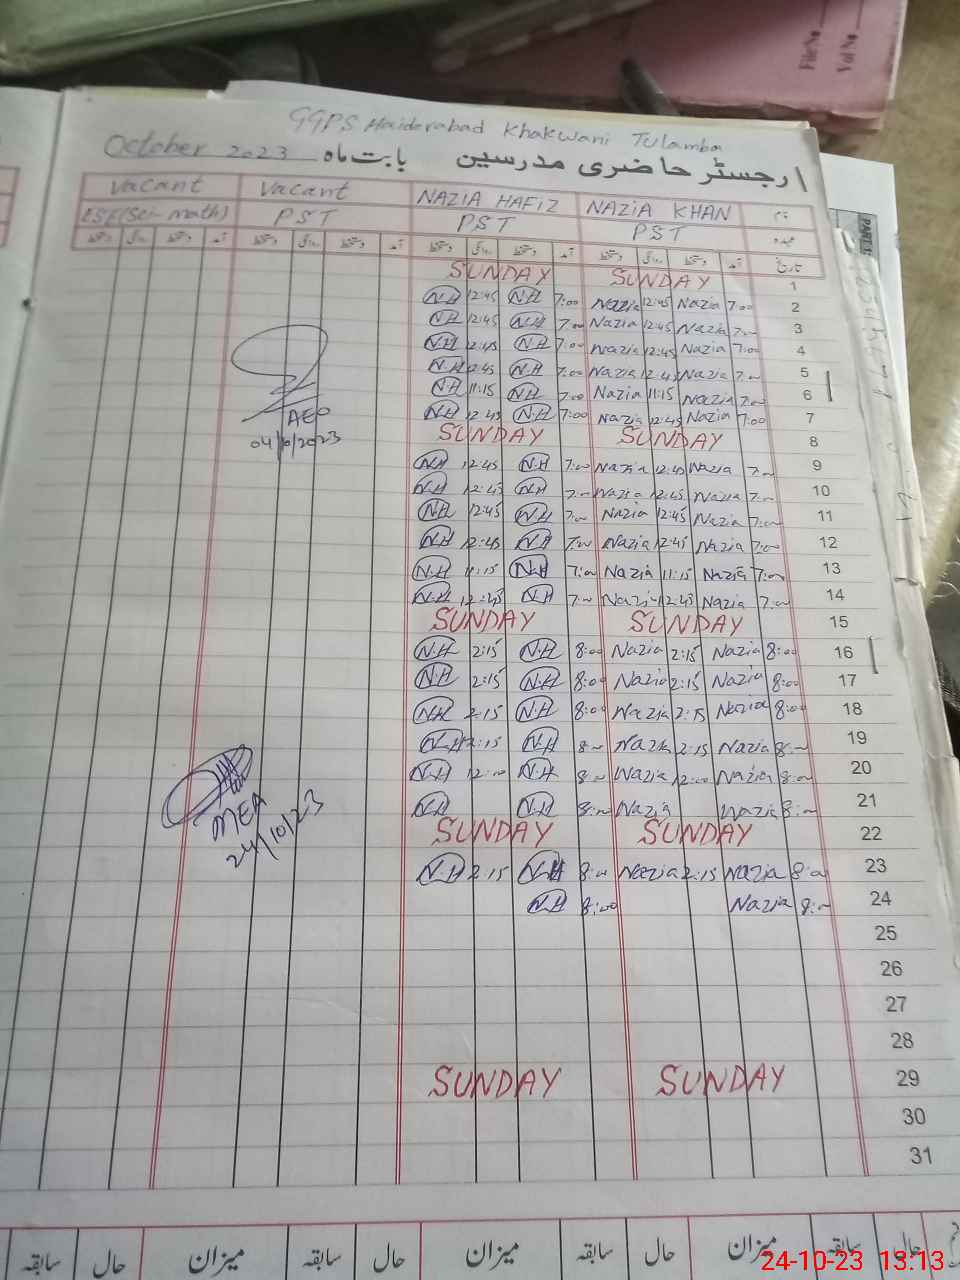 File No
Vol No
GGPS Haiderabad Khakwani Tulamba
October 2023 بابت ماہ رجسٹر حاضری مدرسین
Vacant Vacant NAZIA HAFIZ NAZIA KHAN نام
ESE(Sci-math) PST PST PST عہدہ
دستخط روانگی دستخط آمد دستخط روانگی دستخط آمد دستخط روانگی دستخط آمد دستخط روانگی دستخط آمد تاریخ
SUNDAY SUNDAY 1
N.H 12:45 N.H 7:00 Nazia 12:45 Nazia 7:00 2
N.H 12:45 N.H 7:00 Nazia 12:45 Nazia 7:00 3
N.H 12:45 N.H 7:00 Nazia 12:45 Nazia 7:00 4
N.H 12:45 N.H 7:00 Nazia 12:45 Nazia 7:00 5
N.H 11:15 N.H 7:00 Nazia 11:15 Nazia 7:00 6
N.H 12:45 N.H 7:00 Nazia 12:45 Nazia 7:00 7
AEO
04/10/2023
SUNDAY SUNDAY 8
N.H 12:45 N.H 7:00 Nazia 12:45 Nazia 7:00 9
N.H 12:45 N.H 7:00 Nazia 12:45 Nazia 7:00 10
N.H 12:45 N.H 7:00 Nazia 12:45 Nazia 7:00 11
N.H 12:45 N.H 7:00 Nazia 12:45 Nazia 7:00 12
N.H 11:15 N.H 7:00 Nazia 11:15 Nazia 7:00 13
N.H 12:45 N.H 7:00 Nazia 12:45 Nazia 7:00 14
SUNDAY SUNDAY 15
N.H 2:15 N.H 8:00 Nazia 2:15 Nazia 8:00 16
N.H 2:15 N.H 8:00 Nazia 2:15 Nazia 8:00 17
N.H 2:15 N.H 8:00 Nazia 2:15 Nazia 8:00 18
N.H 2:15 N.H 8:00 Nazia 2:15 Nazia 8:00 19
N.H 12:00 N.H 8:00 Nazia 12:00 Nazia 8:00 20
N.H N.H 8:00 Nazia Nazia 8:00 21
MEA
24/10/23
SUNDAY SUNDAY 22
N.H 2:15 N.H 8:00 Nazia 2:15 Nazia 8:00 23
N.H 8:00 Nazia 8:00 24
25
26
27
28
SUNDAY SUNDAY 29
30
31
سابقہ حال میزان سابقہ حال میزان سابقہ حال میزان سابقہ حال
24-10-23 13:13